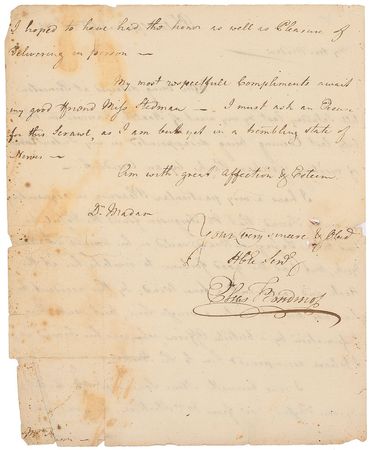 I hoped to have had the honor as well as Pleasure of
delivering in person —
My most respectfull Compliments await
my good friend Miss Stedman —. I must ask an Excuse
for this Scrawl, as I am but yet in a trembling State of
Nerves —
Am with great affection & Esteem
Dr. Madam
Your very sincere & Obed
Hble Servt
Elias Boudinot
Mrs.